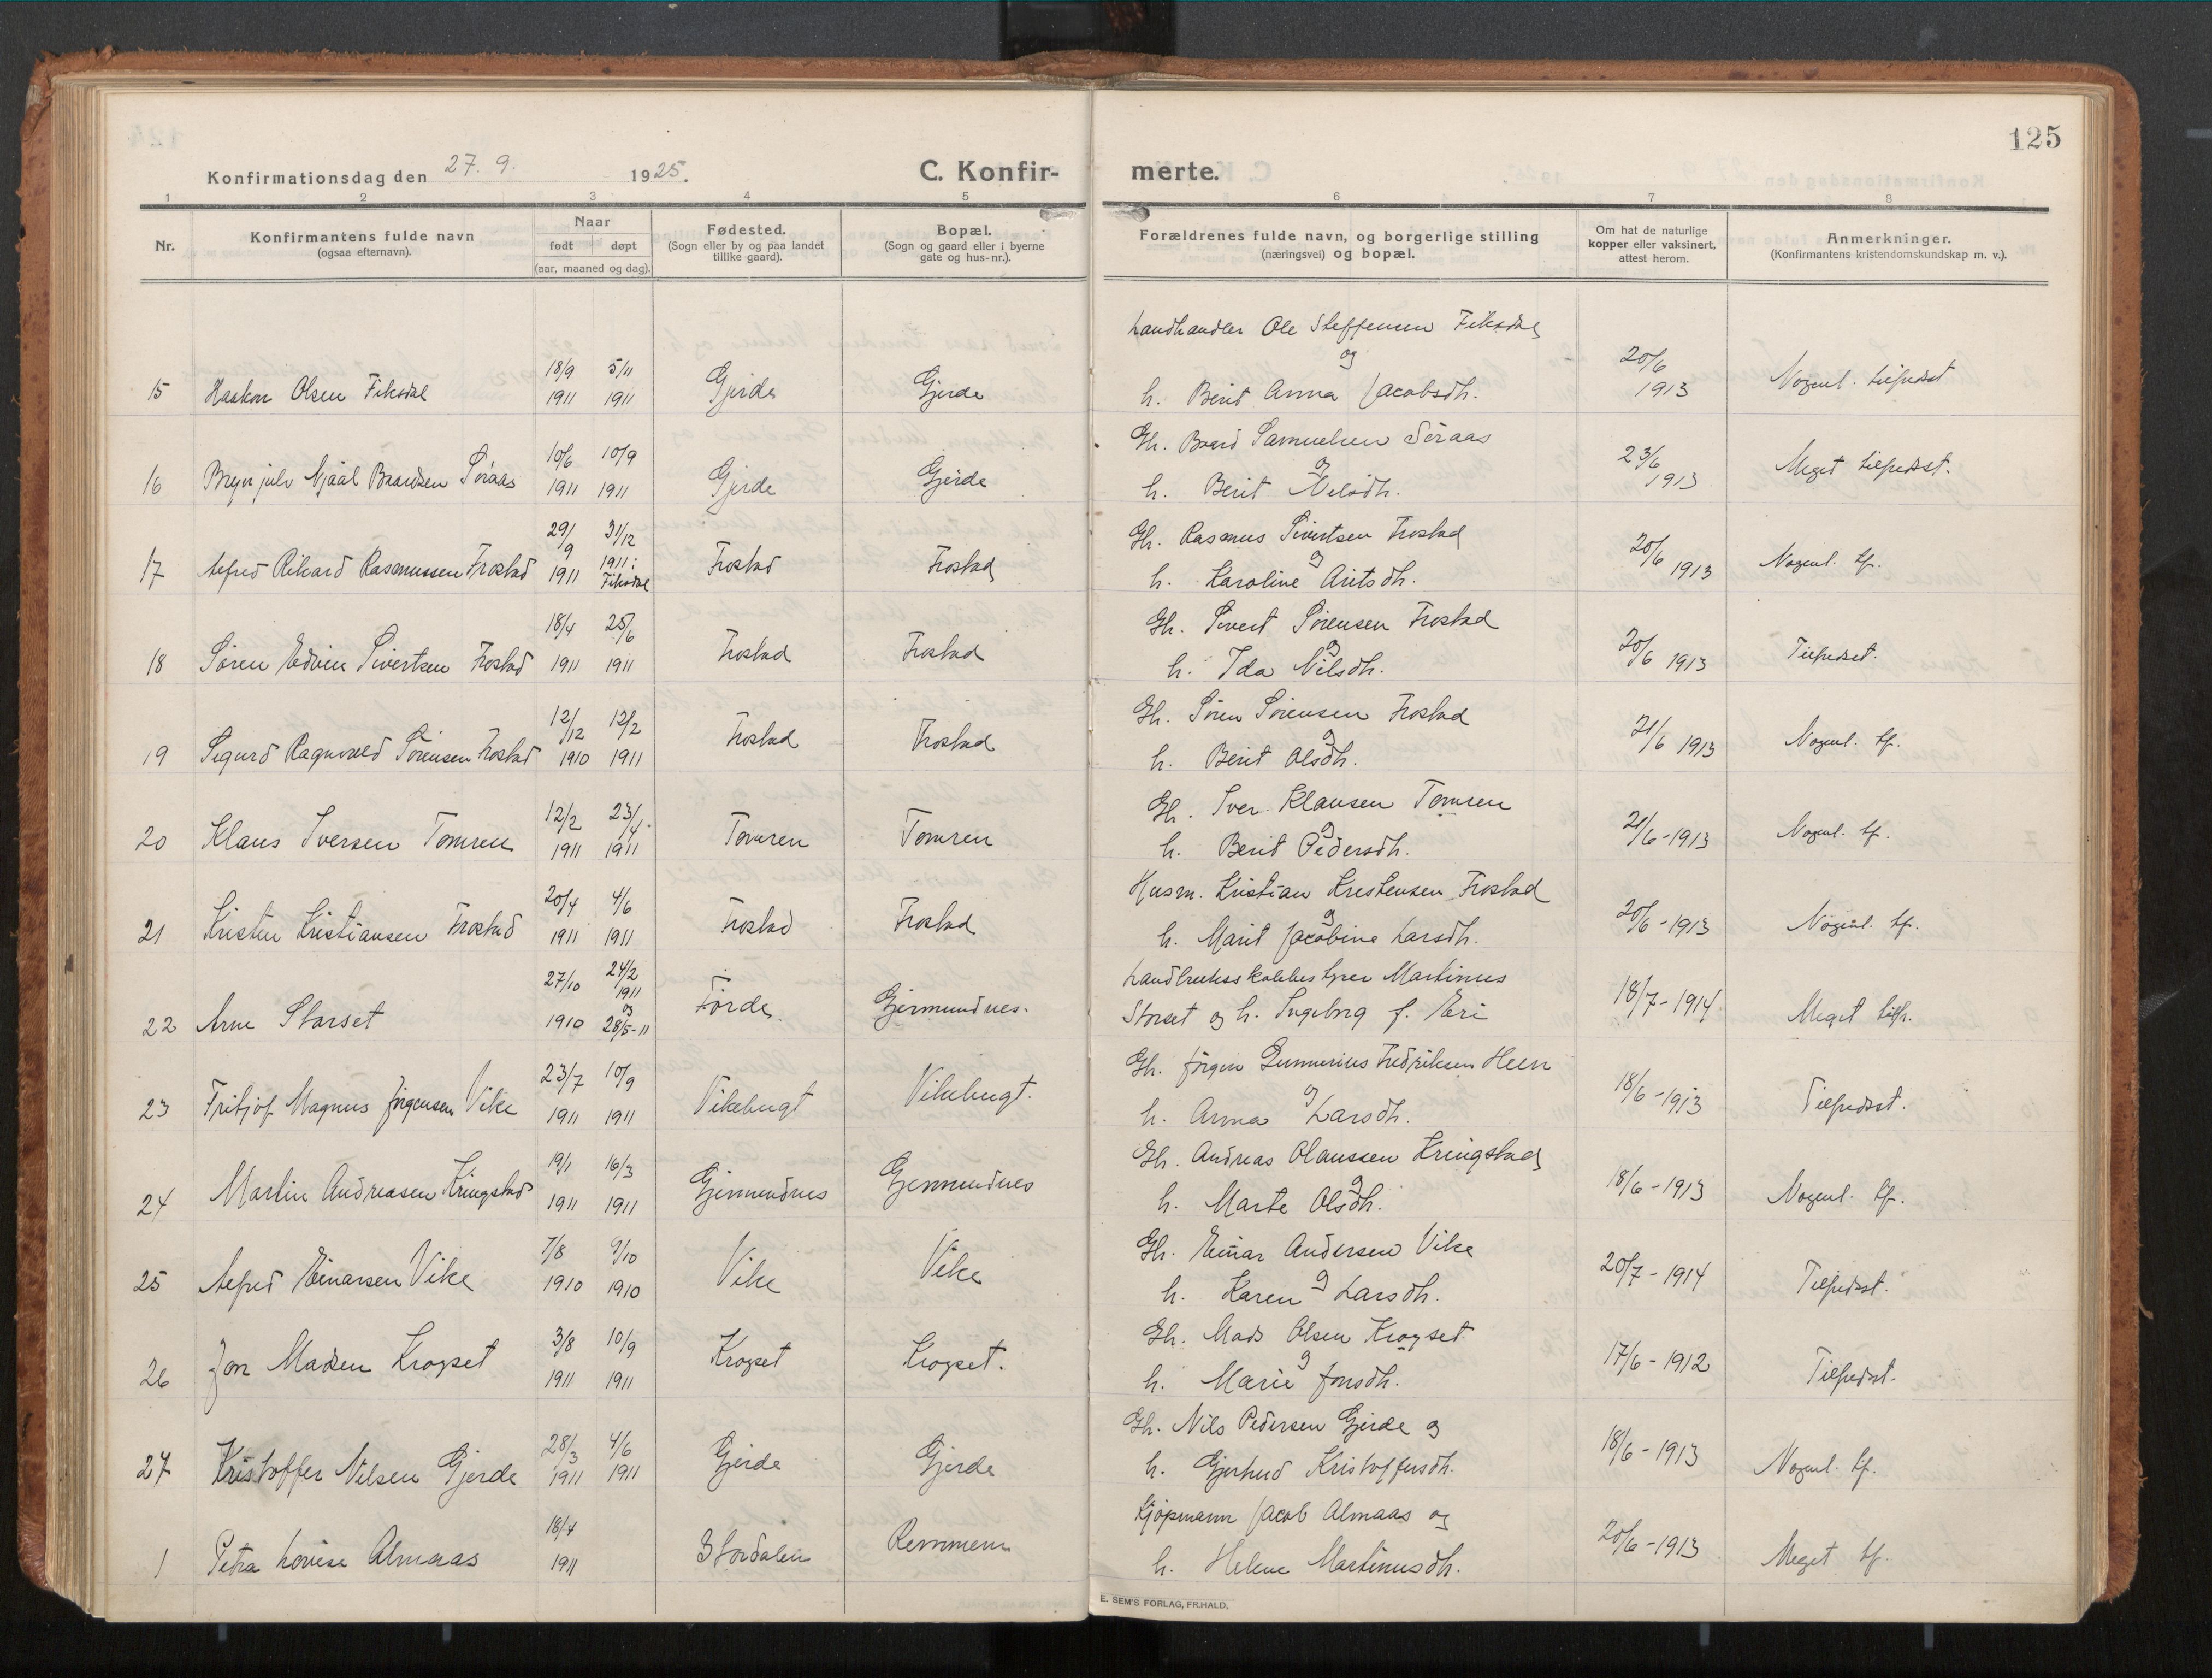 125
Konfirmationsdag den 27. 9. 1925. C. Konfir- merte.
1 2 3 4 5 6 7 8
Nr.
Konfirmantens fulde navn
(ogsaa efternavn).
Naar
født døpt
(aar, maaned og dag).
Fødested.
(Sogn eller by og paa landet
tillike gaard).
Bopæl.
(Sogn og gaard eller i byerne
gate og hus-nr.).
Forældrenes fulde navn, og borgerlige stilling
(næringsvei) og bopæl.
Om hat de naturlige
kopper eller vaksinert,
attest herom.
Anmerkninger.
(Konfirmantens kristendomskundskap m. v.).
Landhandler Ole Steffensen Fiksdal
og
18/9 5/11 20/6
15 Haakon Olsen Fiksdal 1911 1911 Gjerde Gjerde h. Berit Anna Jacobsdh. 1913 Nogenl. tilfredsst
Gh. Baard Samuelsen Søraas
10/6 10/9 og 23/6
16 Brynjulv Njaal Baardsen Søraas 1911 1911 Gjerde Gjerde h. Berit Nelsdh. 1913 Meget tilfredsst.
29/9 31/12 Gh. Rasmus Sivertsen Frostad
1911 i og
17 Alfred Rikard Rasmussen Frostad 1911 Fiksdal Frostad Frostad h. Karoline Aritsdh. 20/6 1913 Nogenl. tf.
18/4 25/6 Gh. Sivert Sørensen Frostad
og
18 Søren Edvin Sivertsen Frostad 1911 1911 Frostad Frostad h. Ida Nilsdh. 20/6 1913 Tilfredsst.
12/12 12/2 Gh. Søren Sørensen Frostad
og
19 Sigurd Ragnvald Sørensen Frostad 1910 1911 Frostad Frostad h. Berit Olsdh. 21/6 1913 Nogenl. tf.
12/2 23/4 Gh. Iver Klausen Tomren
og
20 Klaus Iversen Tomren 1911 1911 Tomren Tomren h. Berit Pedersdh. 21/6-1913 Nogenl. tf.
20/4 4/6 Husm. Kristian Kristensen Frostad
og
21 Kristen Kristiansen Frostad 1911 1911 Frostad Frostad h. Marit Jacobine Larsdh. 20/6-1913 Nogenl. tf.
27/10 24/2 Landbruksskolebestyrer Martinus
1911
og
22 Arne Storset 1910 28/5-11 Førde Gjermundnes. Storset og h. Ingeborg f. Eri 18/7-1914 Meget tilfr.
23/7 10/9 Gh. Jørgen Gunnerius Fredriksen Heen
og
23 Fritjof Magnus Jørgensen Vike 1911 1911 Vikebugt Vikebugt. h. Anna Larsdh. 18/6-1913 Tilfredsst.
19/1 16/3 Gh. Andreas Olaussen Kringstad
og
24 Martin Andreasen Kringstad 1911 1911 Gjermundnes Gjermundnes h. Marte Olsdh. 18/6-1913 Nogenl. tf.
7/8 9/10 Gh. Einar Andersen Vike
og
25 Alfred Einarsen Vike 1910 1910 Vike Vike h. Karen Larsdh. 20/7-1914 Tilfredsst.
3/8 10/9 Gh. Mads Olsen Krogset
og
26 Jon Madsen Krogset 1911 1911 Krogset Krogset. h. Marie Jonsdh. 17/6-1912 Tilfredsst.
28/3 4/6 Gh. Nils Pedersen Gjerde og
27 Kristoffer Nilsen Gjerde 1911 1911 Gjerde Gjerde h. Gjertrud Kristoffersdh. 18/6-1913 Nogenl. tf.
18/4 Kjøpmann Jacob Almaas og
1 Petra Lovise Almaas 1911 Stordalen Remmem h. Helene Martinusdh. 20/6-1913 Meget tf.
E. SEM'S FORLAG, FR.HALD.